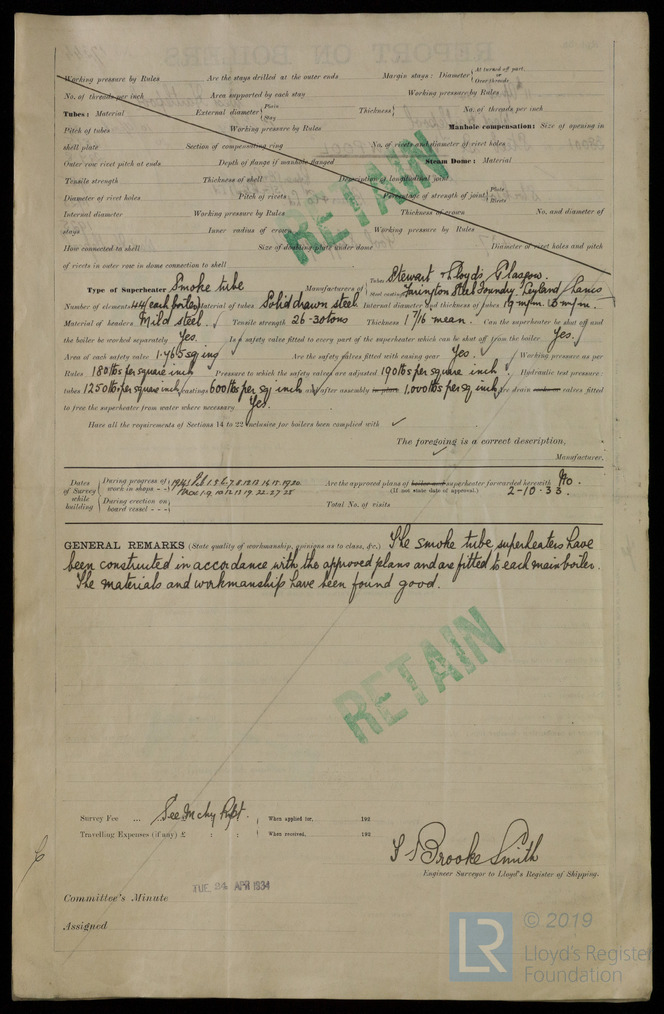 Working pressure by Rules Are the stays drilled at the outer ends Margin stays: Diameter { At turned off part, or Over threads
No. of threads per inch Area supported by each stay Working pressure by Rules
Tubes: Material External diameter { Plain Stay Thickness { No. of threads per inch
Pitch of tubes Working pressure by Rules Manhole compensation: Size of opening in
shell plate Section of compensating ring No. of rivets and diameter of rivet holes
Outer row rivet pitch at ends Depth of flange if manhole flanged Steam Dome: Material
Tensile strength Thickness of shell Description of longitudinal joint
Diameter of rivet holes Pitch of rivets Percentage of strength of joint { Plate Rivets
Internal diameter Working pressure by Rules Thickness of crown No. and diameter of
stays Inner radius of crown Working pressure by Rules
How connected to shell Size of doubling plate under dome Diameter of rivet holes and pitch
of rivets in outer row in dome connection to shell
RETAIN
Type of Superheater Smoke tube Manufacturers of { Tubes Stewart & Lloyds Glasgow.
Steel castings Farington Steel Foundry Leyland Lancs
Number of elements 44 each boiler Material of tubes Solid drawn steel Internal diameter and thickness of tubes 19 m/m. 3 m/m.
Material of headers Mild steel. Tensile strength 26-30 tons Thickness 1 7/16" mean. Can the superheater be shut off and
the boiler be worked separately Yes. Is a safety valve fitted to every part of the superheater which can be shut off from the boiler Yes.
Area of each safety valve 1.765 sq ins Are the safety valves fitted with easing gear Yes. Working pressure as per
Rules 180 lbs per square inch Pressure to which the safety valves are adjusted 190 lbs per square inch Hydraulic test pressure:
tubes 1250 lbs per square inch, castings 600 lbs per sq inch and after assembly in place 1,000 lbs per sq inch, Are drain cocks or valves fitted
to free the superheater from water where necessary Yes.
Have all the requirements of Sections 14 to 22 inclusive for boilers been complied with
The foregoing is a correct description,
Manufacturer.
Dates of Survey while building { During progress of work in shops - - } 1934: Feb 1.5.6.7.8.12.13.14.15.19.20.
Mar. 1.9.10.12.13.19.22.27.28
During erection on board vessel - - -
Are the approved plans of boiler and superheater forwarded herewith No.
(If not state date of approval.) 2-10-33.
Total No. of visits
GENERAL REMARKS (State quality of workmanship, opinions as to class, &c.) The smoke tube superheaters have
been constructed in accordance with the approved plans and are fitted to each main boiler.
The materials and workmanship have been found good.
RETAIN
Survey Fee ... See Mchy Rpt. When applied for, 192
Travelling Expenses (if any) £ : : When received, 192
Brooke Smith
Engineer Surveyor to Lloyd's Register of Shipping.
TUE. 24 APR 1934
Committee's Minute
Assigned
LR © 2019
Lloyd's Register
Foundation